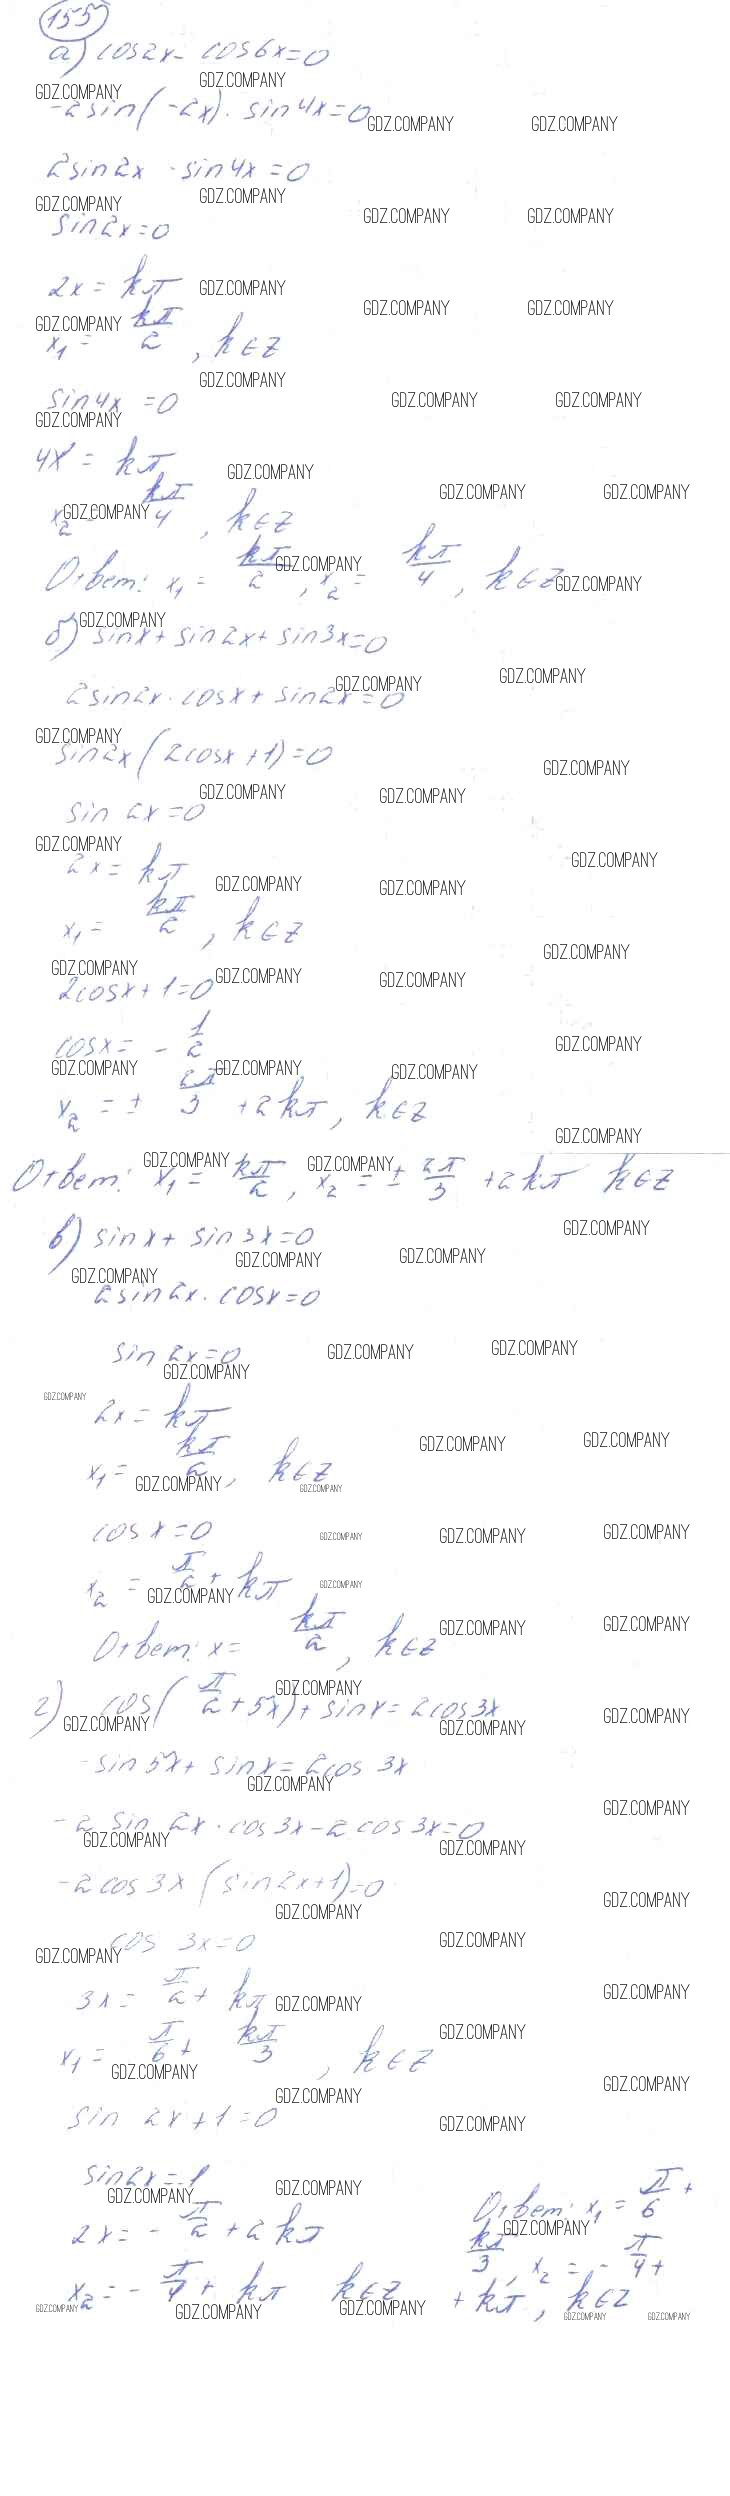 155
а) cos2x - cos6x=0
-2sin(-2x)·sin4x=0
2sin2x·sin4x=0
sin2x=0
2x = kπ
x₁ = kπ/2, k∈Z
sin4x=0
4x = kπ
x₂ = kπ/4, k∈Z
Ответ: x₁ = kπ/2, x₂ = kπ/4, k∈Z
б) sinx+sin2x+sin3x=0
2sin2x·cosx+sin2x=0
sin2x(2cosx+1)=0
sin2x=0
2x = kπ
x₁ = kπ/2, k∈Z
2cosx+1=0
cosx = -1/2
x₂ = ± 2π/3 + 2kπ, k∈Z
Ответ: x₁ = kπ/2, x₂ = ± 2π/3 + 2kπ k∈Z
в) sinx+sin3x=0
2sin2x·cosx=0
sin2x=0
2x = kπ
x₁ = kπ/2, k∈Z
cosx=0
x₂ = π/2 + kπ
Ответ: x = kπ/2, k∈Z
г) cos(π/2+5x)+sinx=2cos3x
-sin5x+sinx=2cos3x
-2sin2x·cos3x-2cos3x=0
-2cos3x(sin2x+1)=0
cos3x=0
3x = π/2 + kπ
x₁ = π/6 + kπ/3, k∈Z
sin2x+1=0
sin2x=-1
2x = -π/2 + 2kπ
x₂ = -π/4 + kπ k∈Z
Ответ: x₁ = π/6 +
kπ/3, x₂ = -π/4 +
+ kπ, k∈Z
GDZ.COMPANY